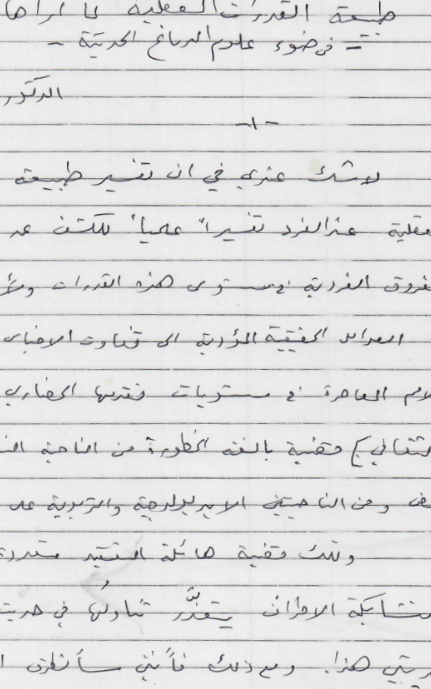 طبيعة القدرات العقلية كما أراها
- في ضوء علوم الدماغ الحديثة -
الدكتور
- ١ -
لا شك عندي في ان تفسير طبيعة
عقلية عند الفرد تفسيراً علمياً للكشف عن
فروق الفردية في مستوى هذه القدرات
العوامل الحقيقية المؤدية الى تفاوت الاجناس
المعاصرة في مستويات تقدمها الحضاري
الثقافي) قضية بالغة الخطورة من الناحية
ومن الناحيتين الايديولوجية والتربوية على
وتلك قضية هائلة التعقيد متعددة
متشابكة الاطراف يتعذَّر تناولُها في حديث
هذا. ومع ذلك فأنني سأتطرق